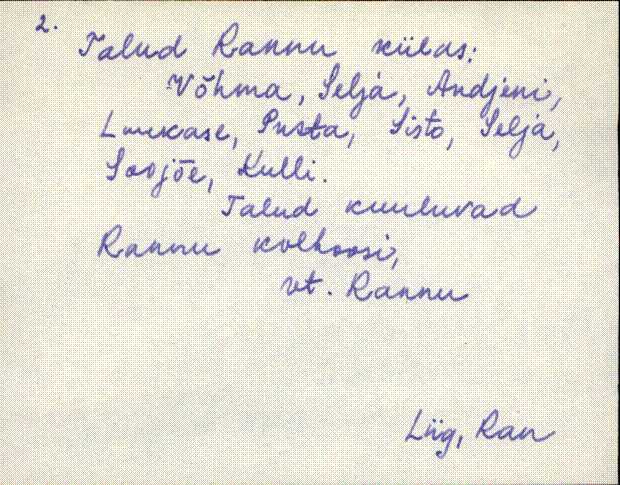 2.
Talud Rannu külas:
Võhma, Selja, Andjeni,
Luukase, Pusta, Sisto, Selja,
Soojõe, Kulli.
Talud kuuluvad
Rannu kolhoosi,
vt. Rannu
Liig, Ran